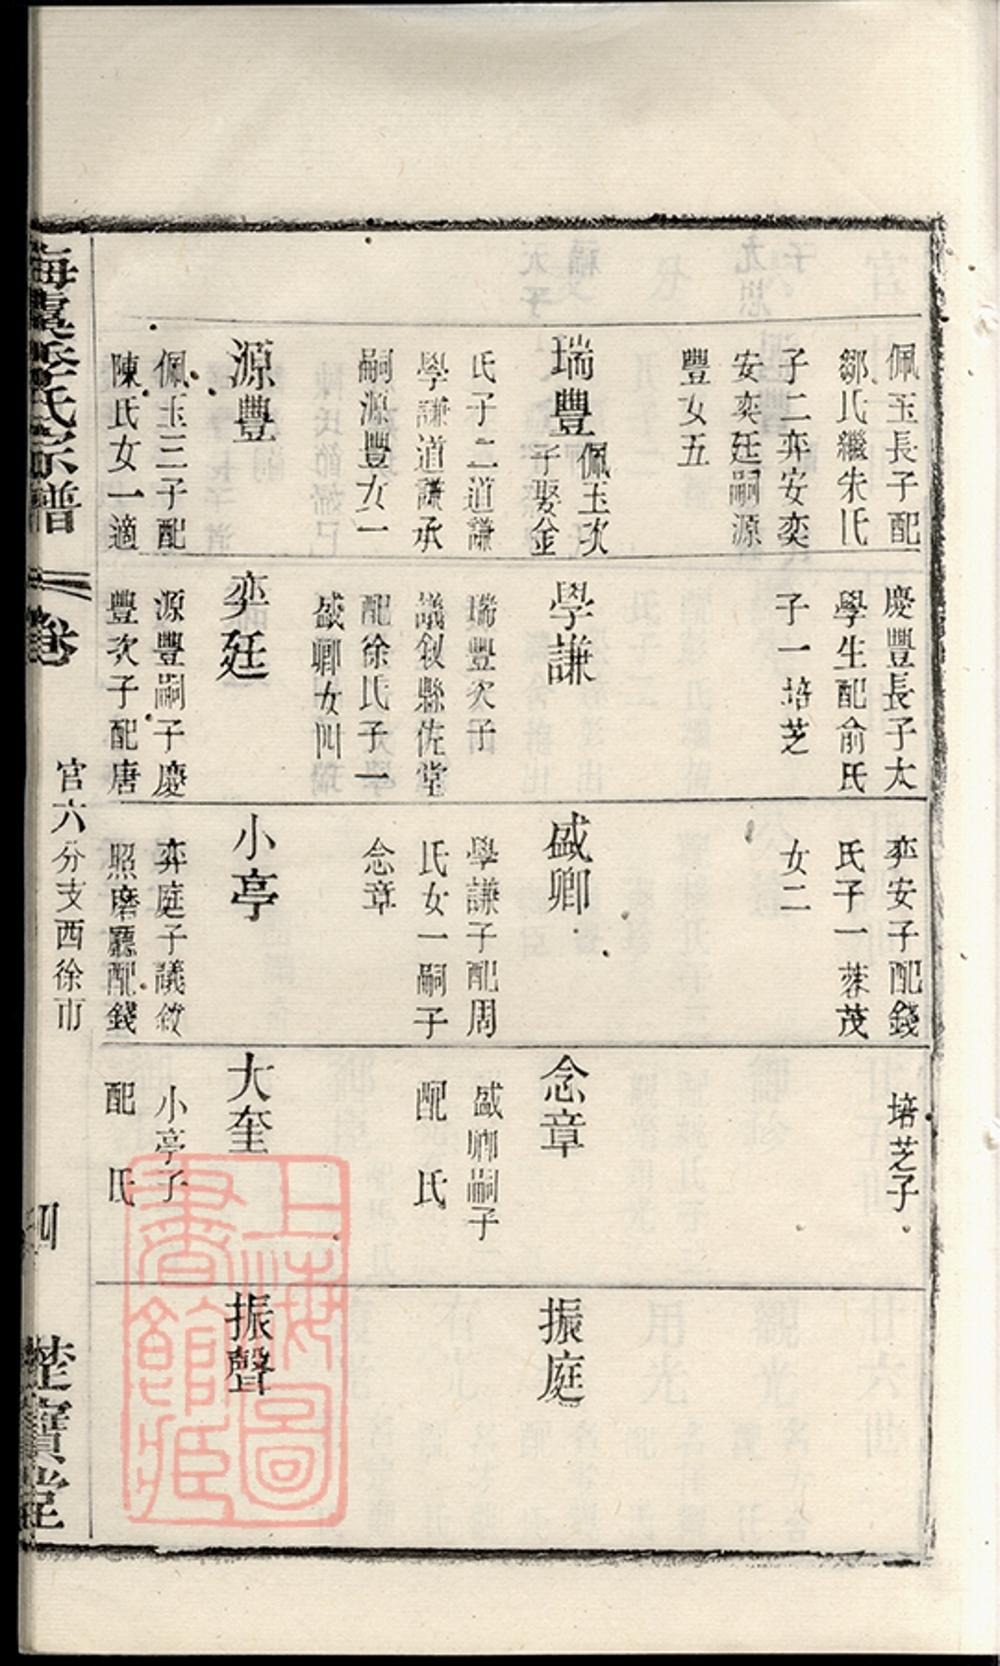 佩玉長子配
鄒氏繼朱氏
子二弈安奕
安奕廷嗣源
豐女五
瑞豐
佩玉次
子娶金
氏子二道謙
學謙道謙承
嗣源豐女一
源豐
佩玉三子配
陳氏女一適
慶豐長子太
學生配俞氏
子一培芝
學謙
瑞豐次子
議敘縣佐堂
配徐氏子一
盛卿女四
奕廷
源豐嗣子慶
豐次子配唐
弈安子配錢
氏子一蓉茂
女二
盛卿
學謙子配周
氏女一嗣子
念章
小亭
弈庭子議敘
照磨廳配錢
培芝子
念章
盛卿嗣子
配 氏
大奎
小亭子
配 氏
振庭
振聲
氏宗譜
卷
官六分支西徐市
四
楚寶堂
上海圖書館藏